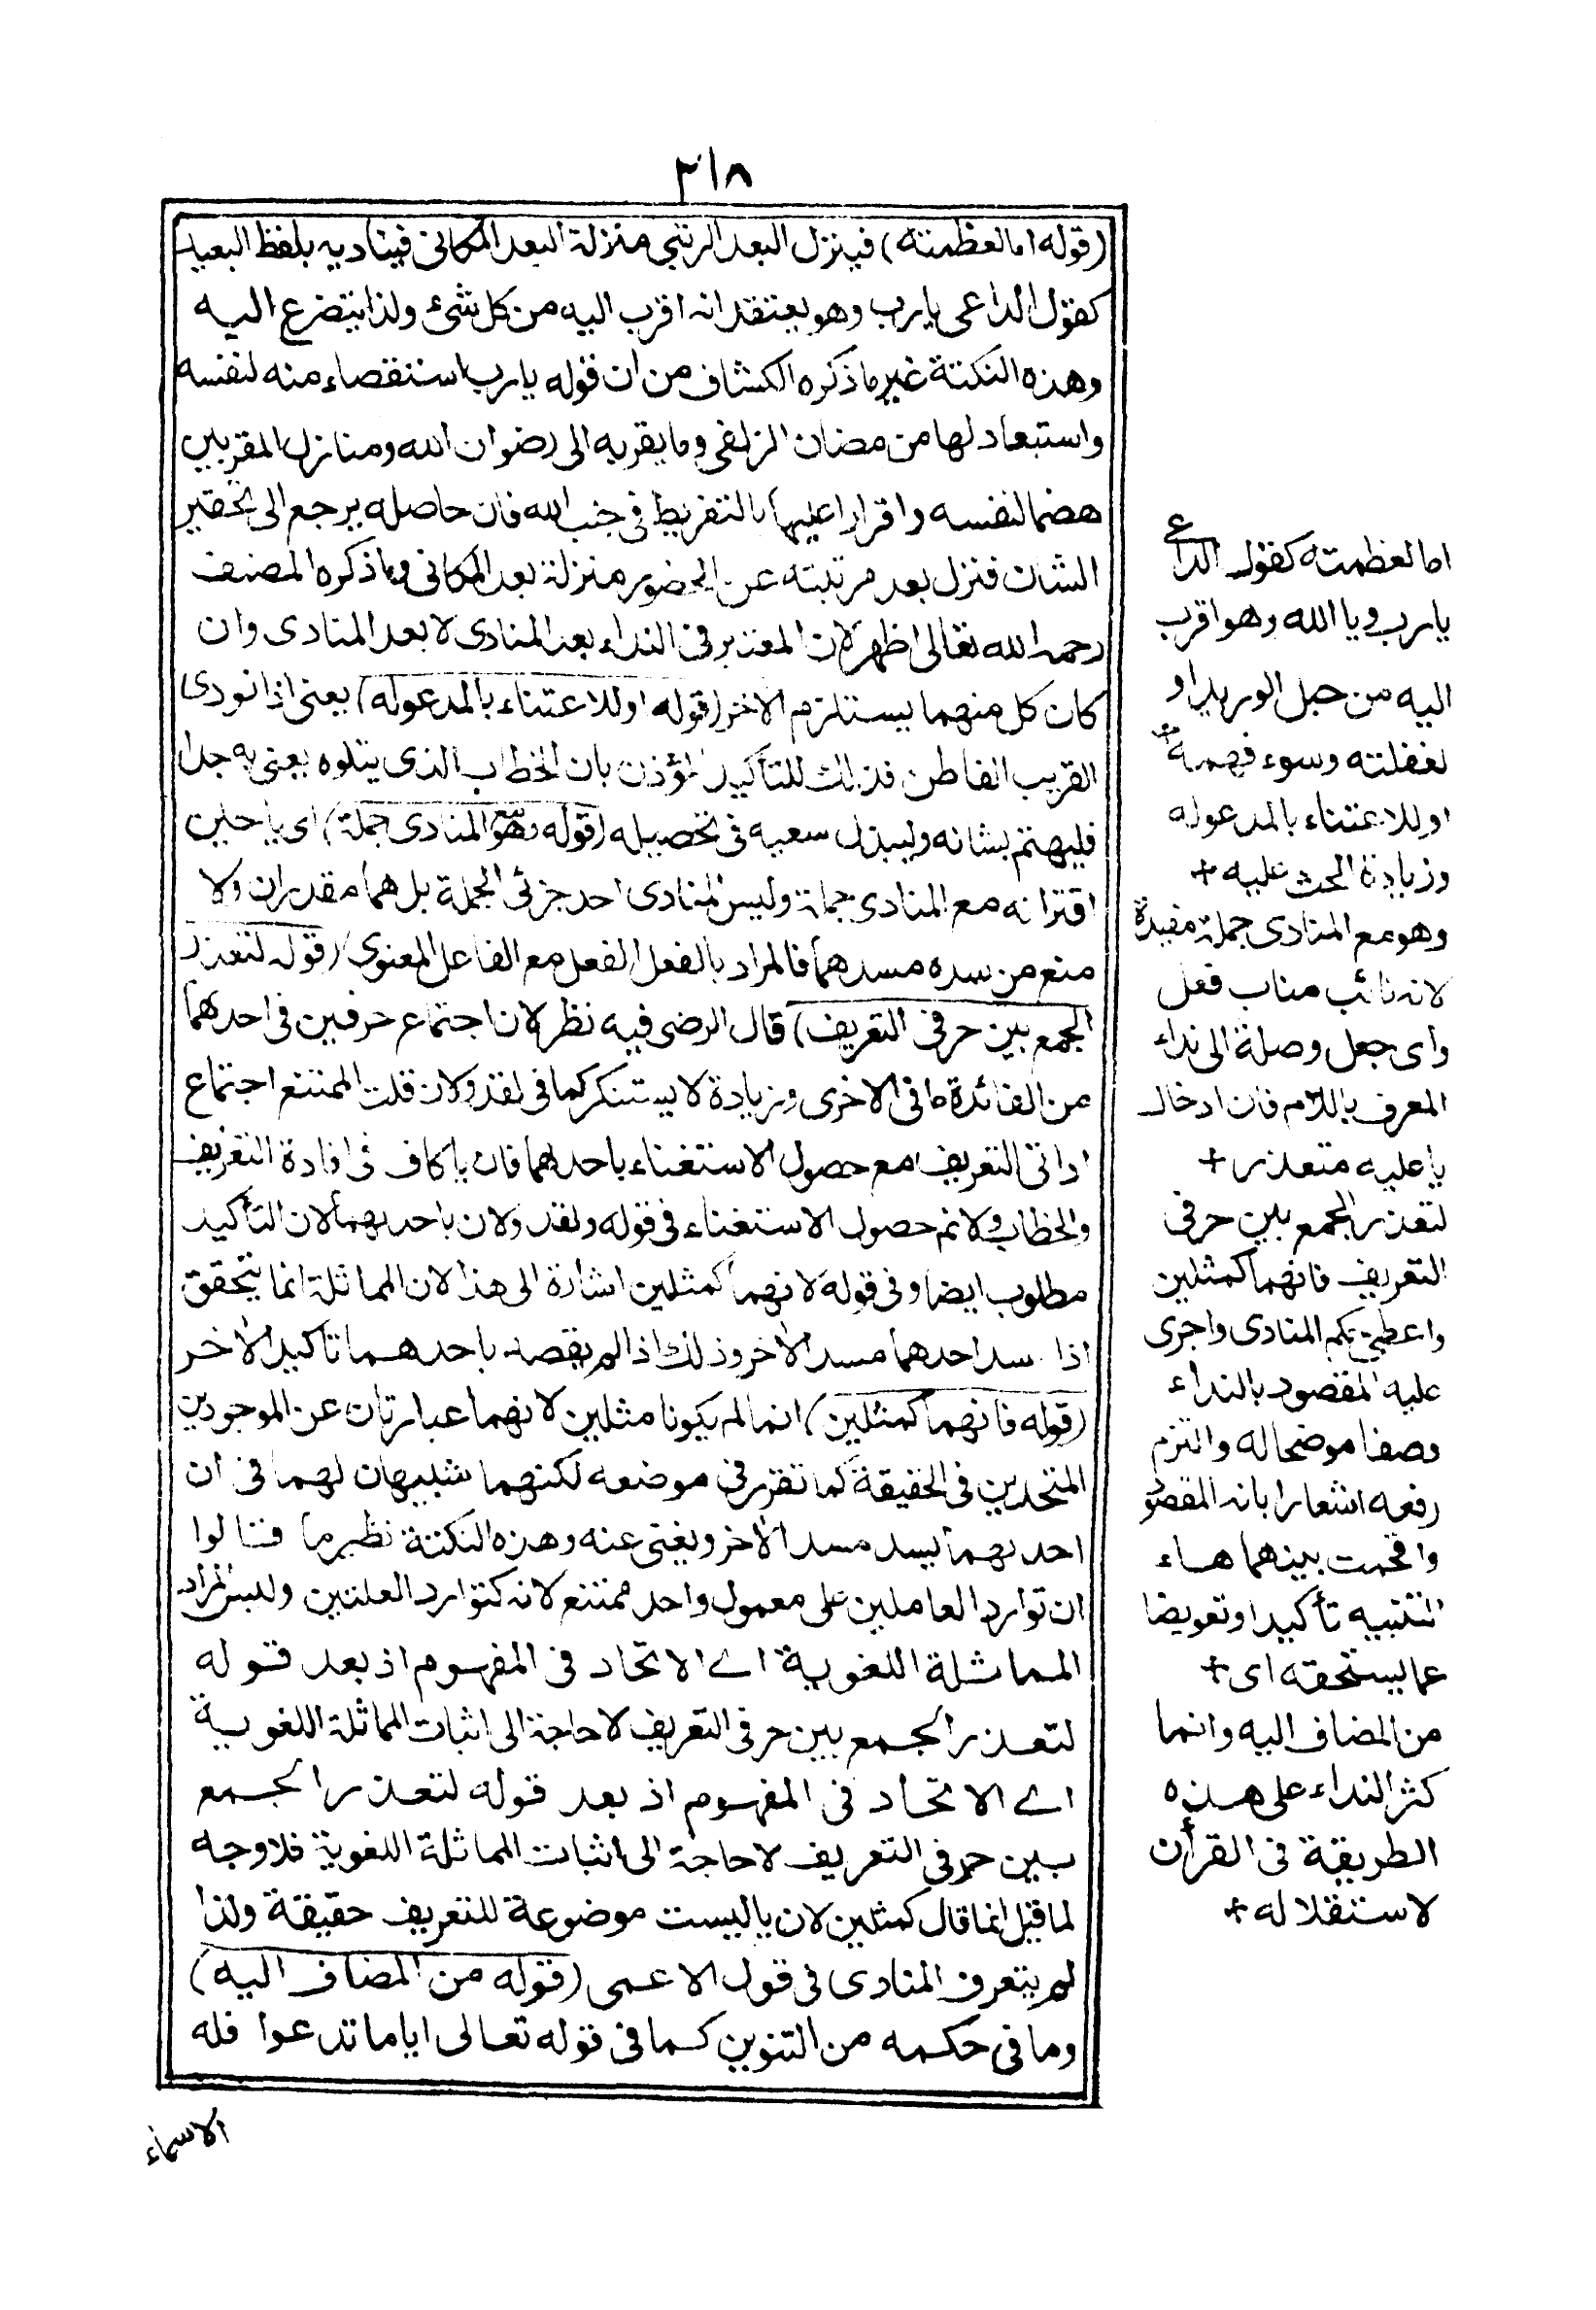 ٣١٨
(قوله اما لعظمته) فينزل البعد الرتبي منزلة البعد المكانى فيناديه بلفظ البعيد
كقول الداعى يا رب وهو يعتقد انه اقرب اليه من كل شئ ولذا يتضرع اليه
وهذه النكتة غير ما ذكره الكشاف من ان قوله يا رب استقصاء منه لنفسه
واستبعاد لها من مضان الزلفى وما يقربه الى رضوان الله ومنازل المقربين
هضما لنفسه واقرارا عليها بالتفريط فى جنب الله فان حاصله يرجع الى تحقير
الشان فنزل بعد مرتبته عن الحضور منزلة بعد المكانى وما ذكره المصنف
رحمه الله تعالى اظهر لان المعتبر فى النداء بعد المنادى لا بعد المنادى وان
كان كل منهما يستلزم الاخر (قوله او للاعتناء بالمدعو له) يعنى اذا نودى
القريب الفاطن فذلك للتأكيد المؤذن بان الخطاب الذى يتلوه يعنى به جدا
فليهتم بشانه وليبذل سعيه فى تحصيله (قوله وهو مع المنادى جملة) اى يا حين
اقترانه مع المنادى جملة وليس المنادى احد جزئى الجملة بل هما مقدران ولا
منع من سده مسدهما فالمراد بالفعل الفعل مع الفاعل المعنوى (قوله لتعذر
الجمع بين حرفى التعريف) قال الرضى فيه نظر لان اجتماع حرفين فى احدهما
من الفائدة ما فى الاخرى وزيادة لا يستنكر كما فى لقد ولان قلت الممتنع اجتماع
اداتى التعريف مع حصول الاستغناء باحدهما فان يا كاف فى افادة التعريف
والخطاب ولا نم حصول الاستغناء فى قوله ولقد ولان باحديهما لان التأكيد
مطلوب ايضا وفى قوله لانهما كمثلين اشارة الى هذا لان المماثلة انما يتحقق
اذا سد احدهما مسد الاخر وذلك اذا لم يقصد باحدهما تاكيد الاخر
(قوله فانهما كمثلين) انما لم يكونا مثلين لانهما عبارتان عن الموجودين
المتحدين فى الحقيقة كما تقرر فى موضعه لكنهما شبيهان لهما فى ان
احديهما يسد مسد الاخر ويغنى عنه وهذه النكتة نظير ما قالوا
ان توارد العاملين على معمول واحد ممتنع لانه كتوارد العلتين وليس المراد
المماثلة اللغوية اے الاتحاد فى المفهوم اذ بعد قوله
لتعذر الجمع بين حرفى التعريف لا حاجة الى اثبات المماثلة اللغوية
اے الاتحاد فى المفهوم اذ بعد قوله لتعذر الجمع
بين حرفى التعريف لا حاجة الى اثبات المماثلة اللغوية فلا وجه
لما قيل انما قال كمثلين لان يا ليست موضوعة للتعريف حقيقة ولذا
لم يتعرف المنادى فى قول الاعمى (قوله من المضاف اليه)
وما فى حكمه من التنوين كما فى قوله تعالى اياما تدعوا فله
الاسماء
اما لعظمته كقول الداعى
يا رب ويا الله وهو اقرب
اليه من حبل الوريد او
لغفلته وسوء فهمه +
او للاعتناء بالمدعو له
وزيادة الحث عليه +
وهو مع المنادى جملة مفيدة
لانه نائب مناب فعل
واى جعل وصلة الى نداء
المعرف باللام فان ادخال
يا عليه متعذر +
لتعذر الجمع بين حرفى
التعريف فانهما كمثلين
واعطى حكم المنادى واجرى
عليه المقصود بالنداء
وصفا موضحا له والتزم
رفعه اشعارا بانه المقصود
واقحمت بينهما هاء
التنبيه تأكيدا وتعويضا
عما يستحقه اى +
من المضاف اليه وانما
كثر النداء على هذه
الطريقة فى القرأن
لاستقلاله +